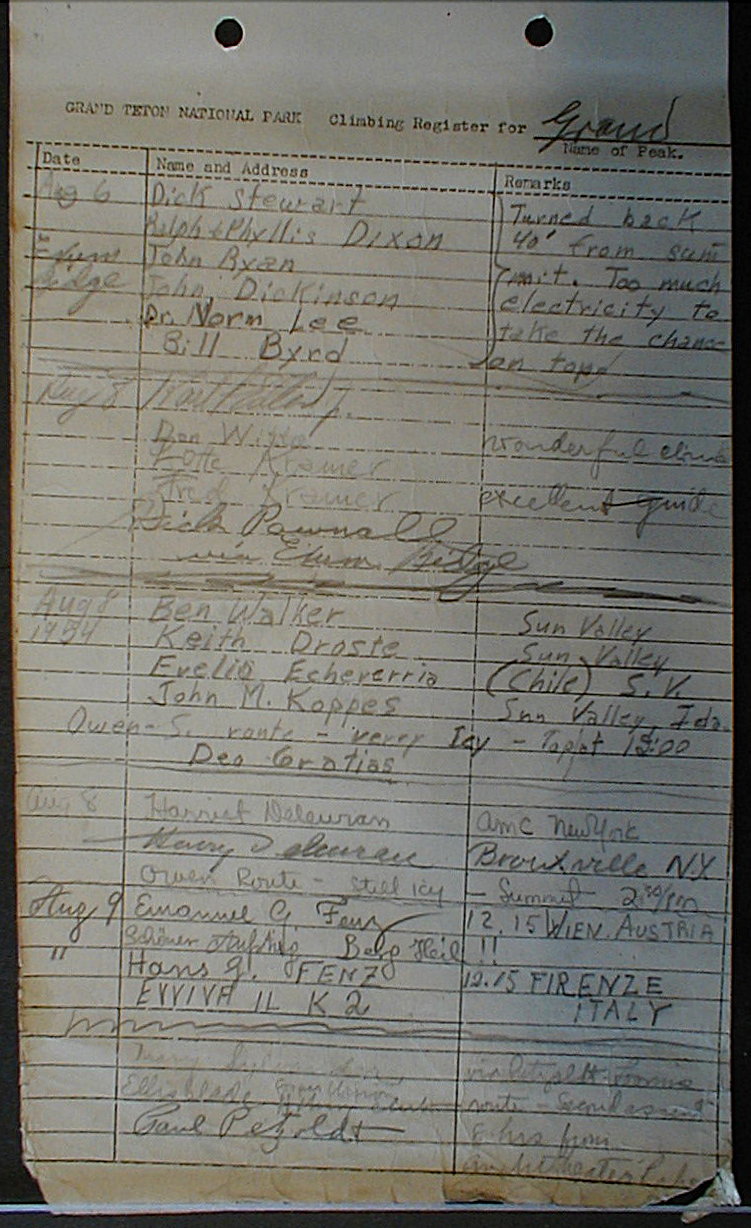 GRAND TETON NATIONAL PARK Climbing Register for Grand
Name of Peak.
Date Name and Address Remarks
Aug 6 Dick Stewart Turned back
Ralph & Phyllis Dixon 40' from sum
Exum John Ryan mit. Too much
Ridge John Dickinson electricity to
Dr. Norm Lee take the chance
Bill Byrd on top
Aug 8
Don wonderful climb
Lotte Kramer
Fred Kramer excellent guide
Dick Pownall
via Exum Ridge
Aug 8 Ben Walker Sun Valley
1954 Keith Droste Sun Valley
Evelio Echeverria (Chile) S. V.
John M. Koppes Sun Valley, Ida.
Owen-S. route - verry Icy - Top at
Deo Gratias
Aug 8 Harriet Deleuran AMC New York
Deleuran Bronxville NY
Owen Route - still icy - Summit 2:30 pm
Aug 9 Emanuel G. Fenz 12.15 WIEN. AUSTRIA
Schöner Aufstieg Berg Heil !!
" Hans G. FENZ 12.15 FIRENZE
EVVIVA IL K 2 ITALY
Mary via Petzoldt
route - Second ascent
Paul Petzoldt 8 hrs from